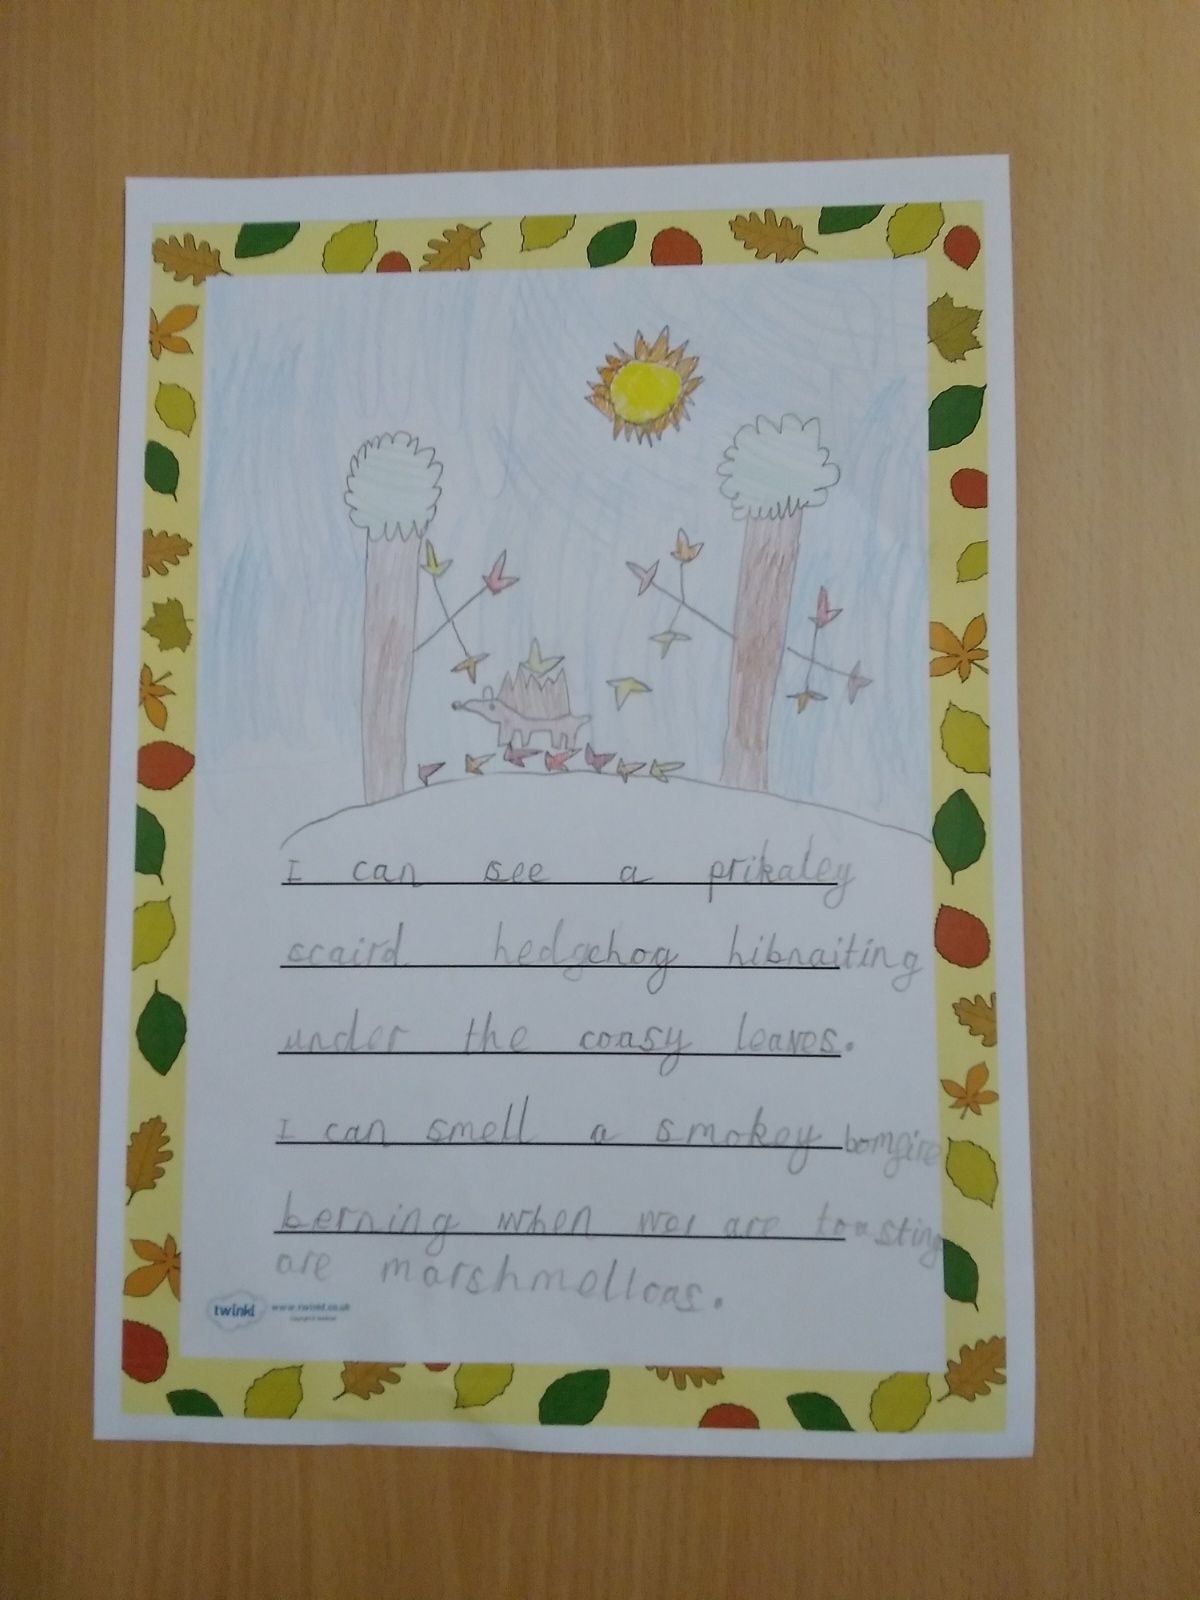 I can see a prikaley
scaird hedgehog hibnaiting
under the coasy leaves.
I can smell a smokey bomfire
berning when wer are toasting
are marshmelloas.
twinkl www.twinkl.co.uk